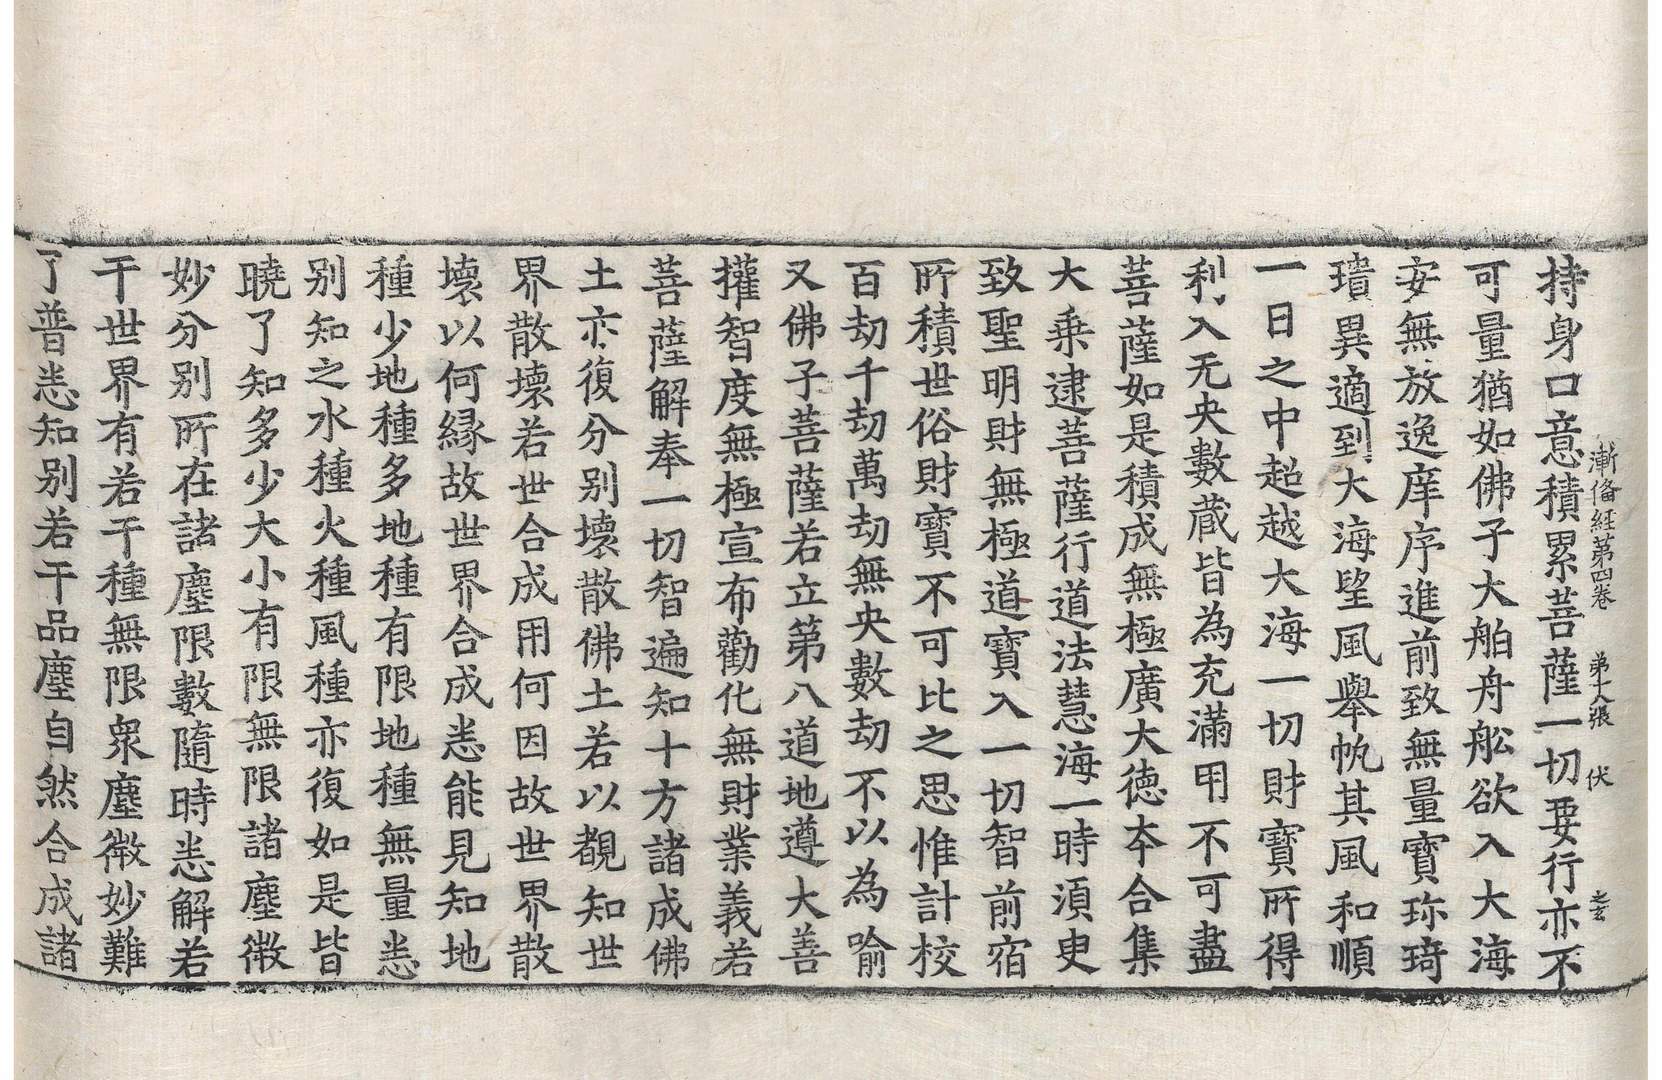 漸俻経苐四卷 張 伏
持身口意積累菩薩一切要行亦不
可量猶如佛子大舶舟舩欲入大海
安無放逸庠序進前致無量寶珎琦
瓄異適到大海望風舉帆其風和順
一日之中超越大海一切財寶所得
利入无央數蔵皆為充滿用不可盡
菩薩如是積成無極廣大德夲合集
大乗逮菩薩行道法慧海一時湏臾
致聖明財無極道寶入一切智前宿
所積世俗財寶不可比之思惟計校
百劫千劫萬劫無央數劫不以為喻
又佛子菩薩若立第八道地遵大善
攉智度無極宣布勸化無財業義若
菩薩解奉一切智遍知十方諸成佛
土亦復分別壞散佛土若以覩知世
界散壞若世合成用何因故世界散
壞以何縁故世界合成悉能見知地
種少地種多地種有限地種無量悉
別知之水種火種風種亦復如是皆
曉了知多少大小有限無限諸塵微
妙分別所在諸塵限數隨時悉解若
干世界有若干種無限衆塵微妙難
了普悉知別若干品塵自然合成諸